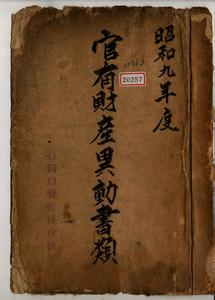 昭和九年度
官有財産異動書類
20257